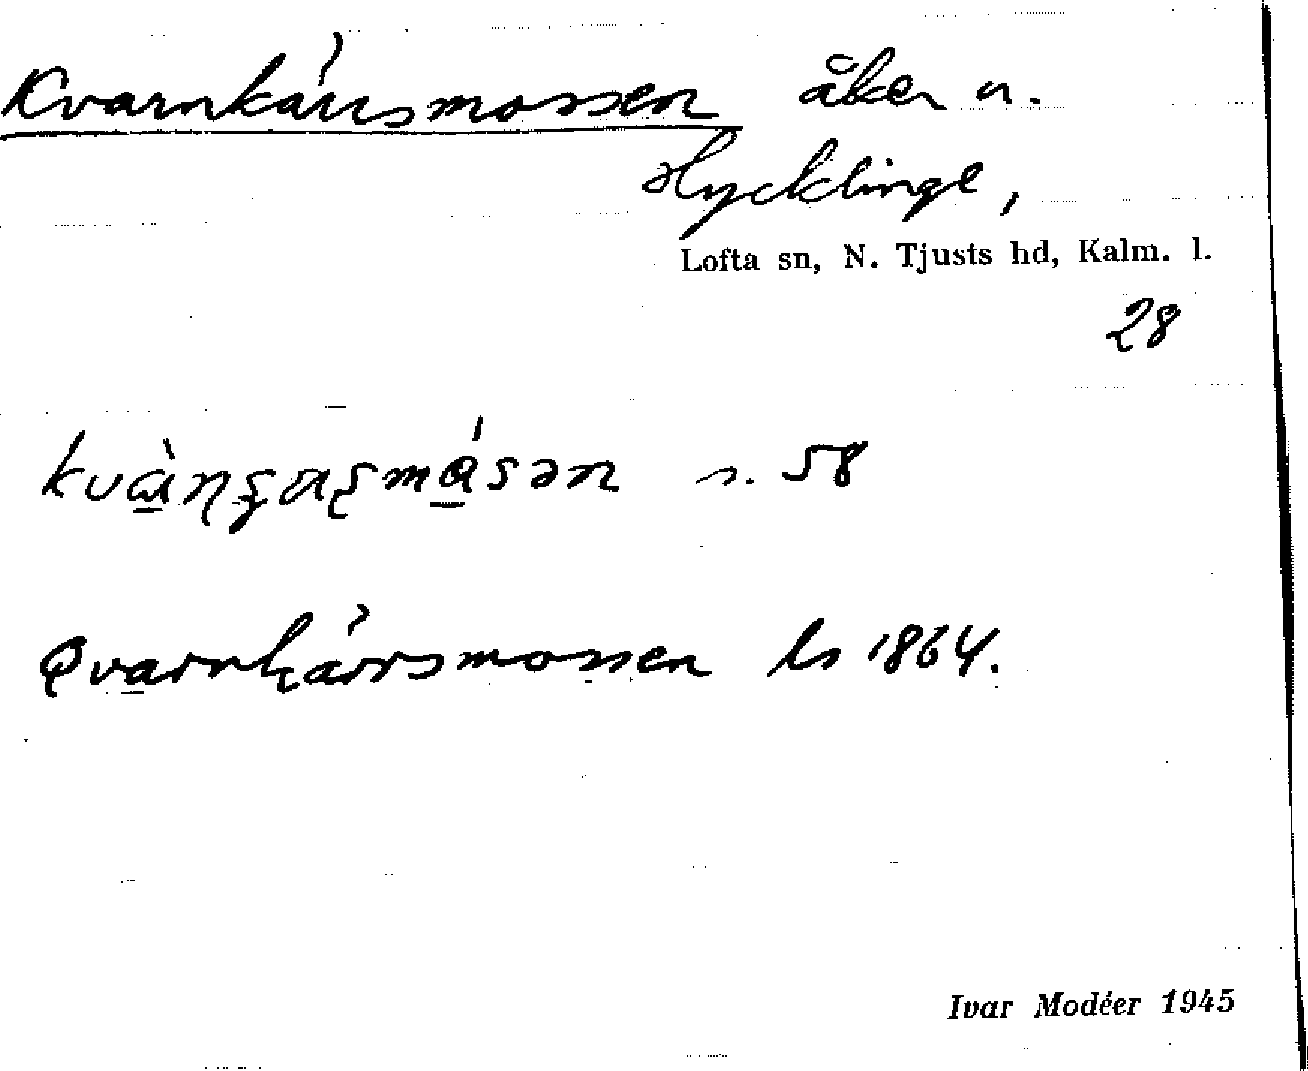 Kvarnkärrsmossen åker n.
Hycklinge,
Lofta sn, N. Tjusts hd, Kalm. l.
28
s. 58
Qvarnkärrsmossen ls 1864.
Ivar Modéer 1945